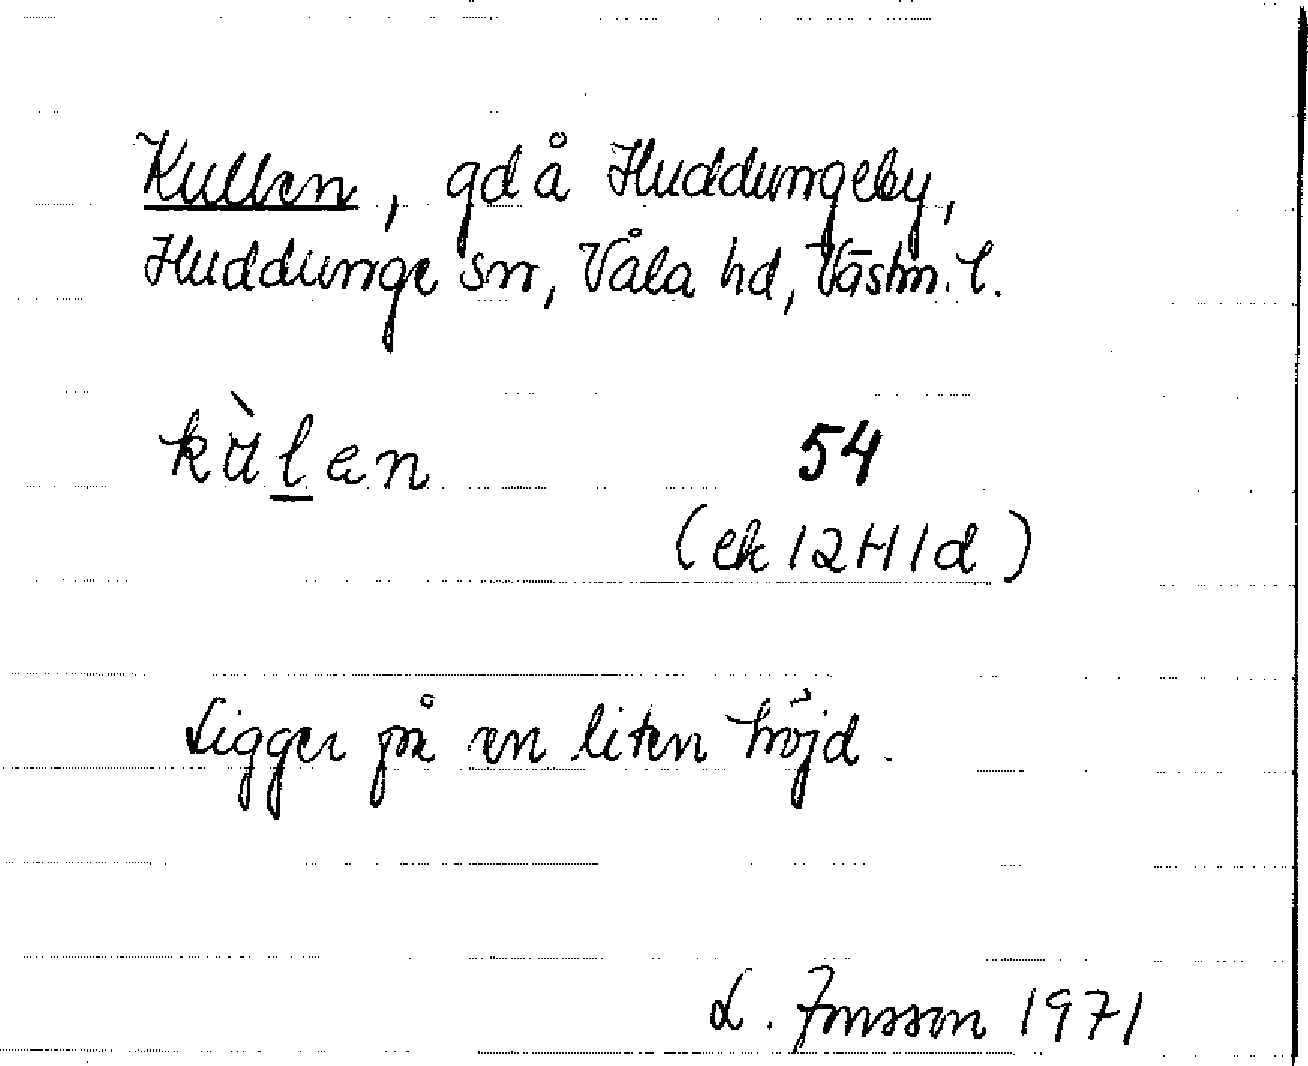 Kullen, gd å Huddungeby,
Huddunge sn, Våla hd, Västm. l.
kùlen 54
(ek 12H1d)
Ligger på en liten höjd.
L. Jonsson 1971